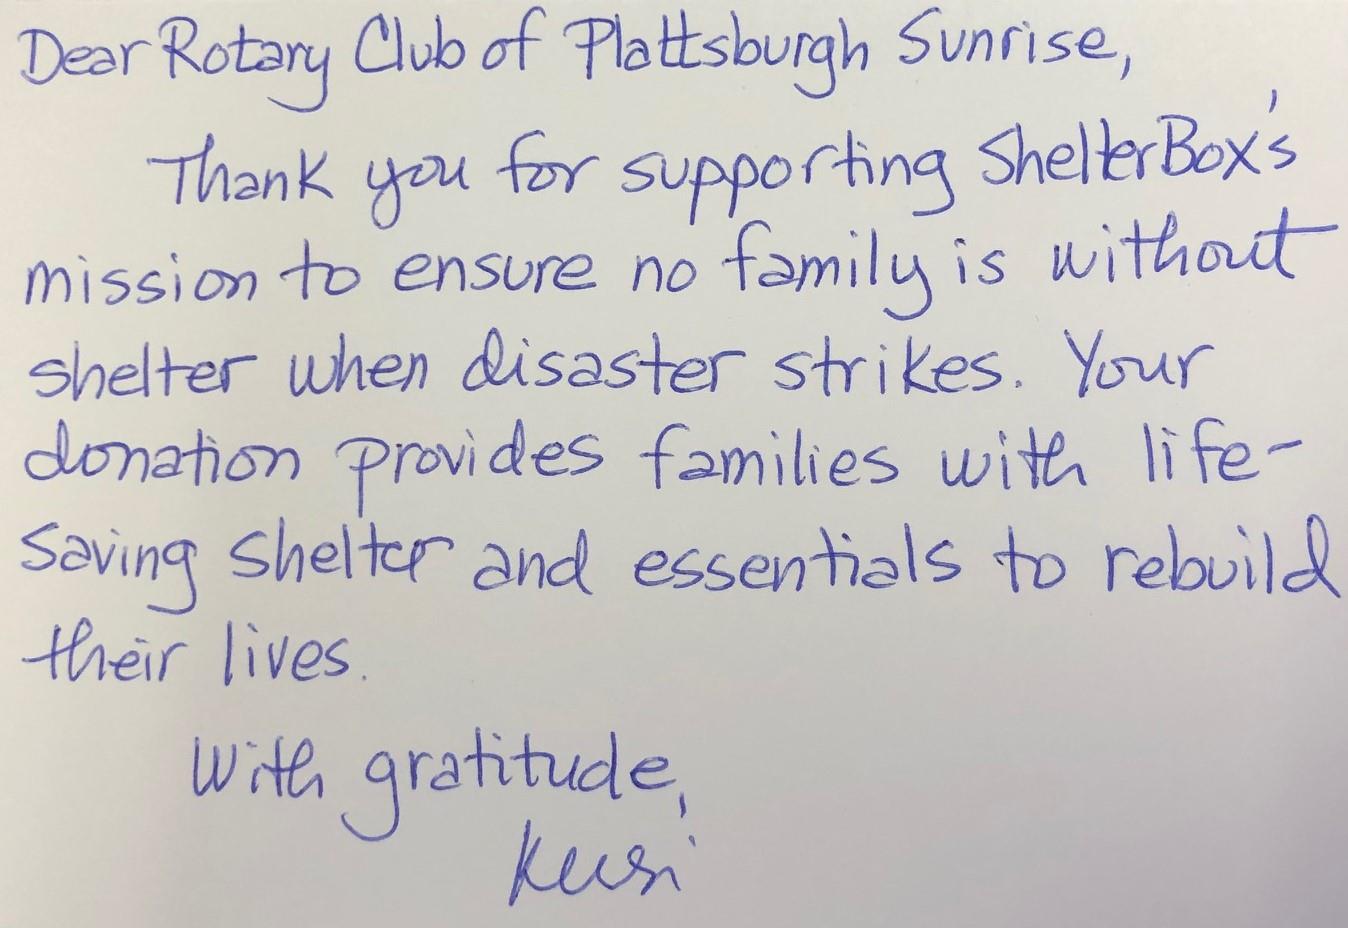 Dear Rotary Club of Plattsburgh Sunrise,
Thank you for supporting ShelterBox's
mission to ensure no family is without
shelter when disaster strikes. Your
donation provides families with life-
saving shelter and essentials to rebuild
their lives.
With gratitude,